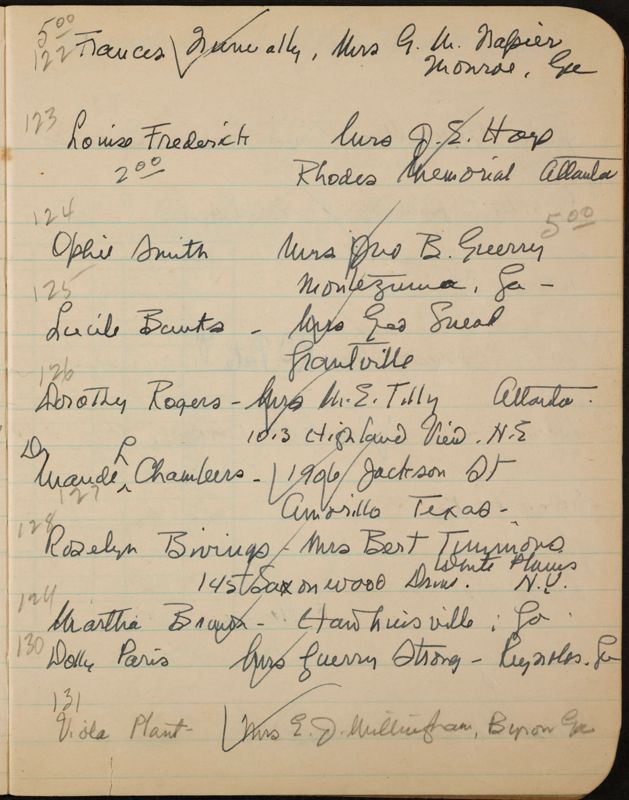 5.00
122 Frances Nunnally, Mrs G. M. Napier
Monroe, Ga
123
Louise Frederick Mrs J. E. Hays
2.00 Rhodes Memorial Atlanta
124 5.00
Ophie Smith Mrs Jno B. Guerry
Montezuma, Ga -
125
Lucile Banks - Mrs Geo Snead
Grantville
126
Dorothy Rogers - Mrs M. E. Tilly Atlanta.
1013 Highland View. N.E
Dr L
Maude Chambers - 1906 Jackson St
127
Amarillo Texas -
128
Roselyn Bivings - Mrs Bert Timmons
White Plains
145 Saxon wood Drive. N.Y.
129
Martha Brown - Hawkinsville, Ga.
130
Dolly Paris Mrs Guerry Strong - Reynolds. Ga
131
Viola Plant - Mrs E. J. Willingham, Byron Ga